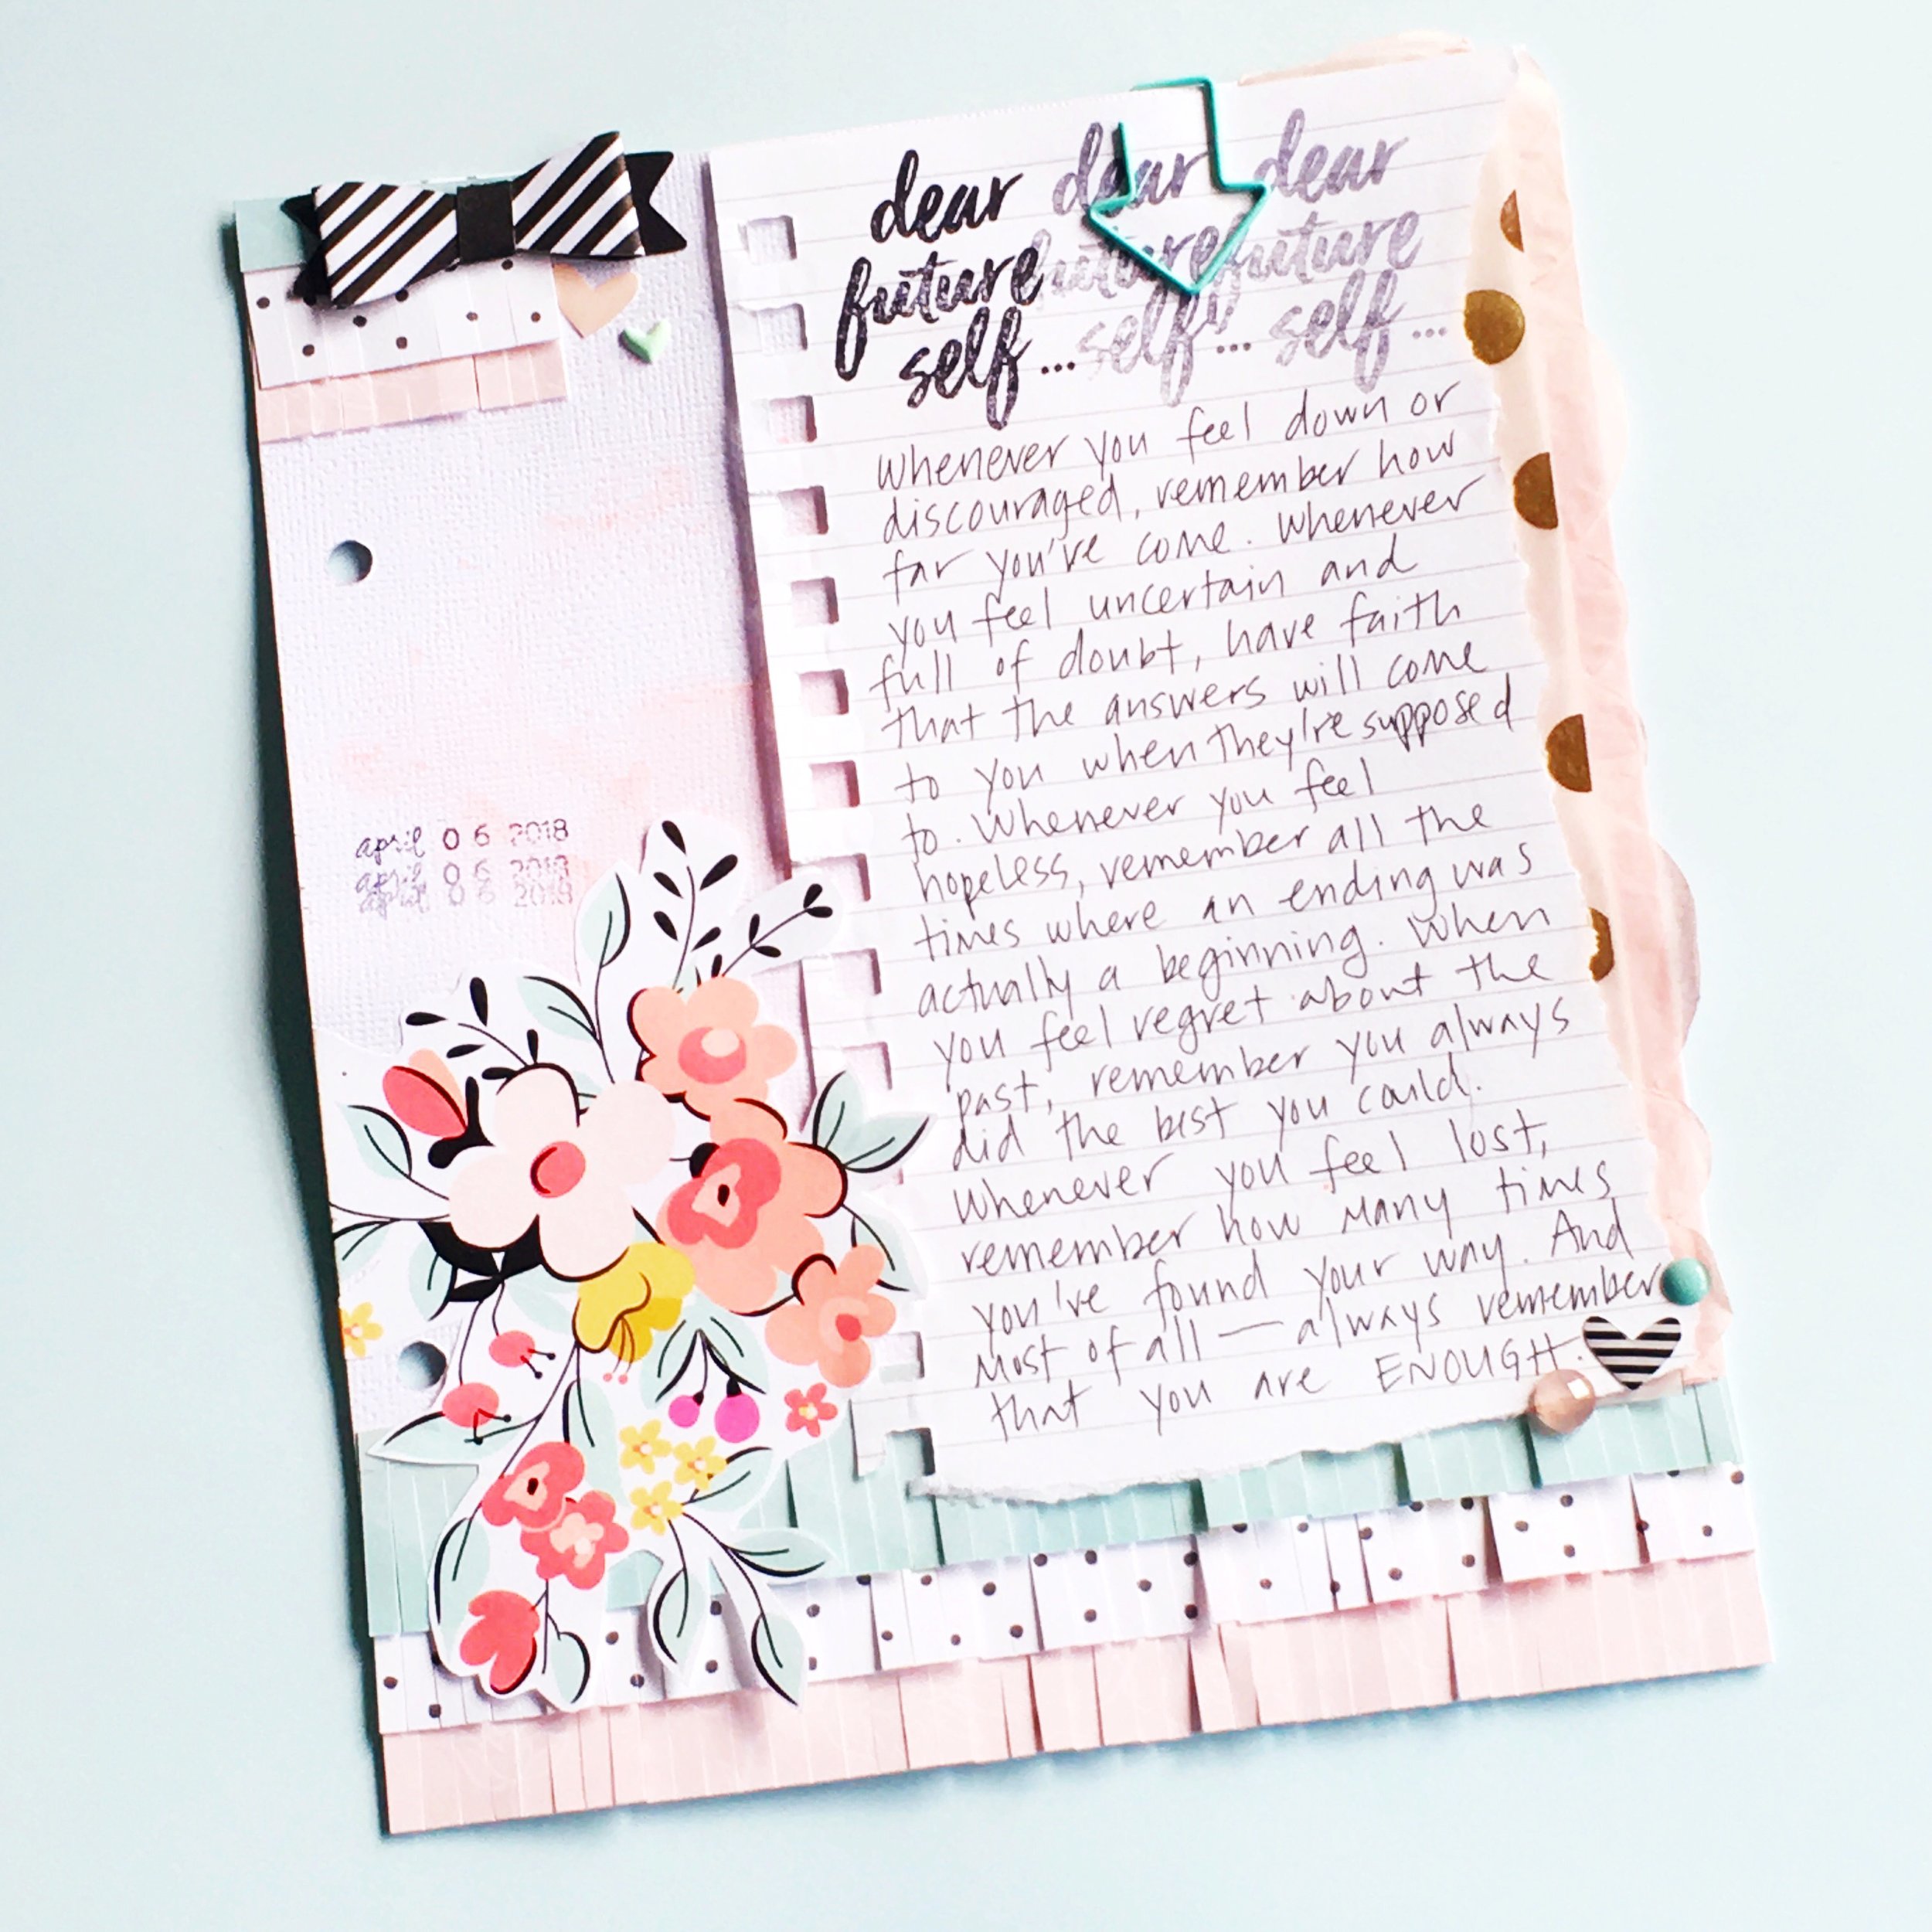 dear dear dear
future future future
self... self... self...
Whenever you feel down or
discouraged, remember how
far you've come. Whenever
you feel uncertain and
full of doubt, have faith
that the answers will come
to you when they're supposed
to. Whenever you feel
hopeless, remember all the
times where an ending was
actually a beginning. When
you feel regret about the
past, remember you always
did the best you could.
Whenever you feel lost,
remember how many times
you've found your way. And
most of all — always remember
that you are ENOUGH.
april 06 2018
april 06 2018
april 06 2018